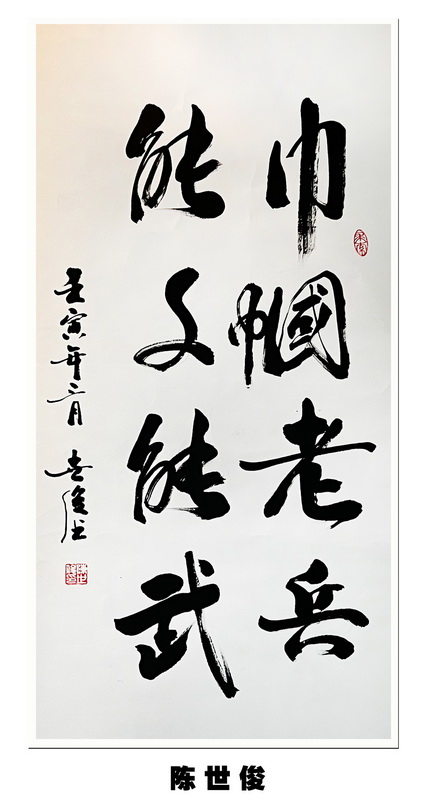 巾帼老兵
能文能武
壬寅年二月 世俊书
陈世俊